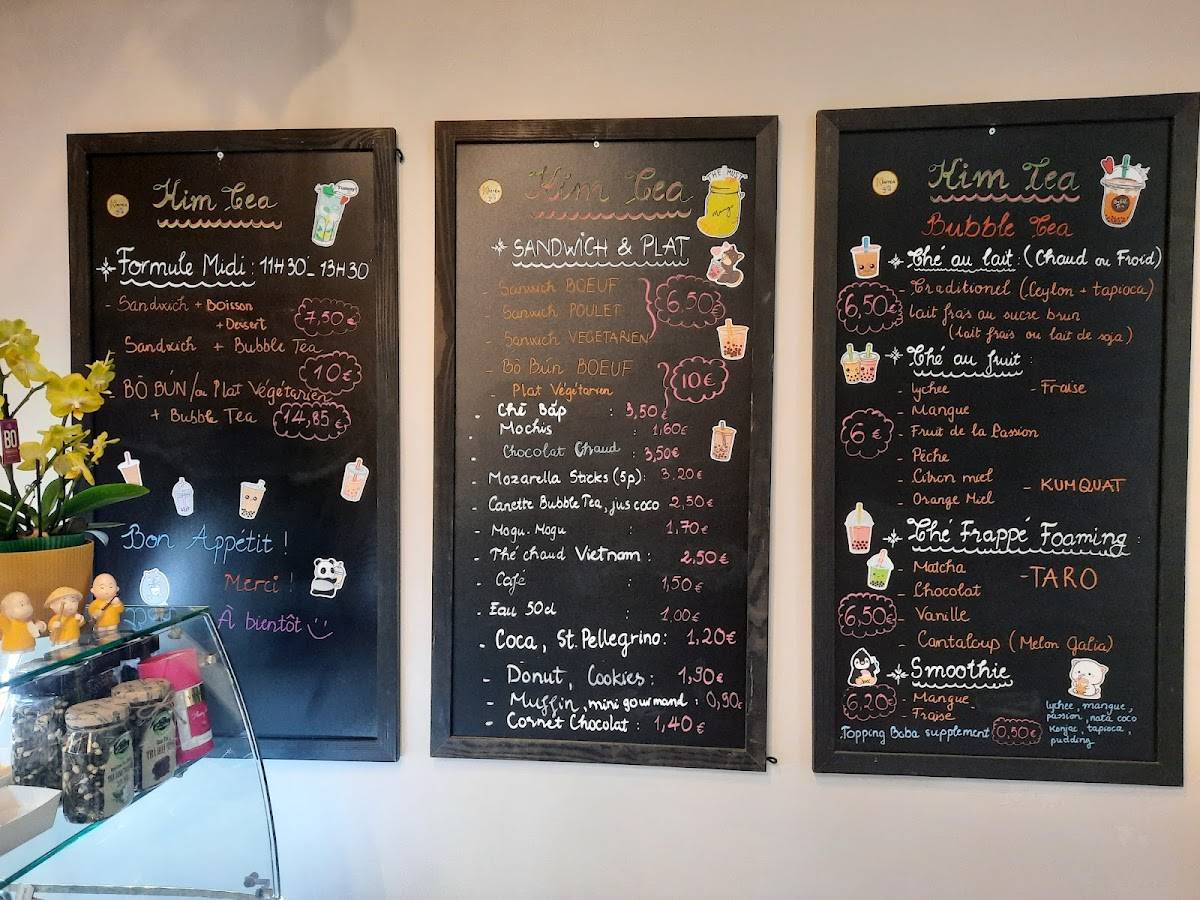 Kim Tea
Formule Midi : 11H30'_ 13H30'
- Sandwich + Boisson
+ Dessert
7,50€
Sandwich + Bubble Tea
10€
- BÒ BÚN/ou Plat Végétarien
+ Bubble Tea
14,85€
Bon Appétit !
Merci !
À bientôt
BO
Kim Tea
SANDWICH & PLAT
- Sanwich BOEUF
- Sanwich POULET
- Sanwich VEGETARIEN
6.50€
- Bò Bún BOEUF
- Plat Végétarien
10€
- Chè Bắp : 3,50€
- Mochis : 1,60€
- Chocolat Chaud : 3,50€
- Mozarella Sticks (5p): 3,20€
- Canette Bubble Tea, jus coco 2,50€
- Mogu-Mogu : 1,70€
- Thé chaud Vietnam : 2.50€
- Café : 1,50€
- Eau 50cl : 1,00€
- Coca, St.Pellegrino: 1,20€
- Donut, Cookies : 1,90€
- Muffin, mini gourmand : 0,90€
- Cornet Chocolat : 1,40€
Kim Tea
Bubble Tea
Thé au lait : (Chaud ou Froid)
6,50€
- Traditionel (Ceylon + tapioca)
lait frais au sucre brun
(lait frais ou lait de soja)
Thé au fruit :
- lychee - Fraise
- Mangue
6€
- Fruit de la Passion
- Pêche
- Citron miel - KUMQUAT
- Orange Miel
Thé Frappé Foaming :
- Matcha - TARO
- Chocolat
6,50€
- Vanille
- Cantaloup (Melon Galia)
Smoothie
6,20€
- Mangue
- Fraise
Topping Boba supplement 0,50€
lychee, mangue,
passion, nata coco
konjac, tapioca,
pudding